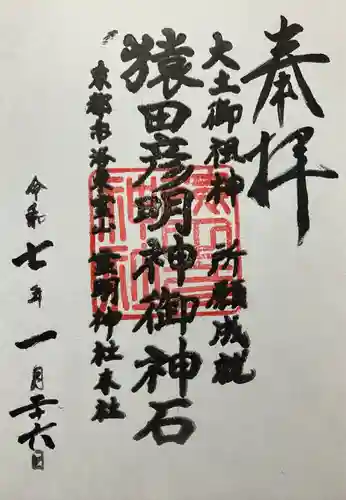 奉拝
大土御祖神 所願成就
猿田彦明神御神石
京都市洛東霊山 霊明神社本社
令和七年一月廿六日